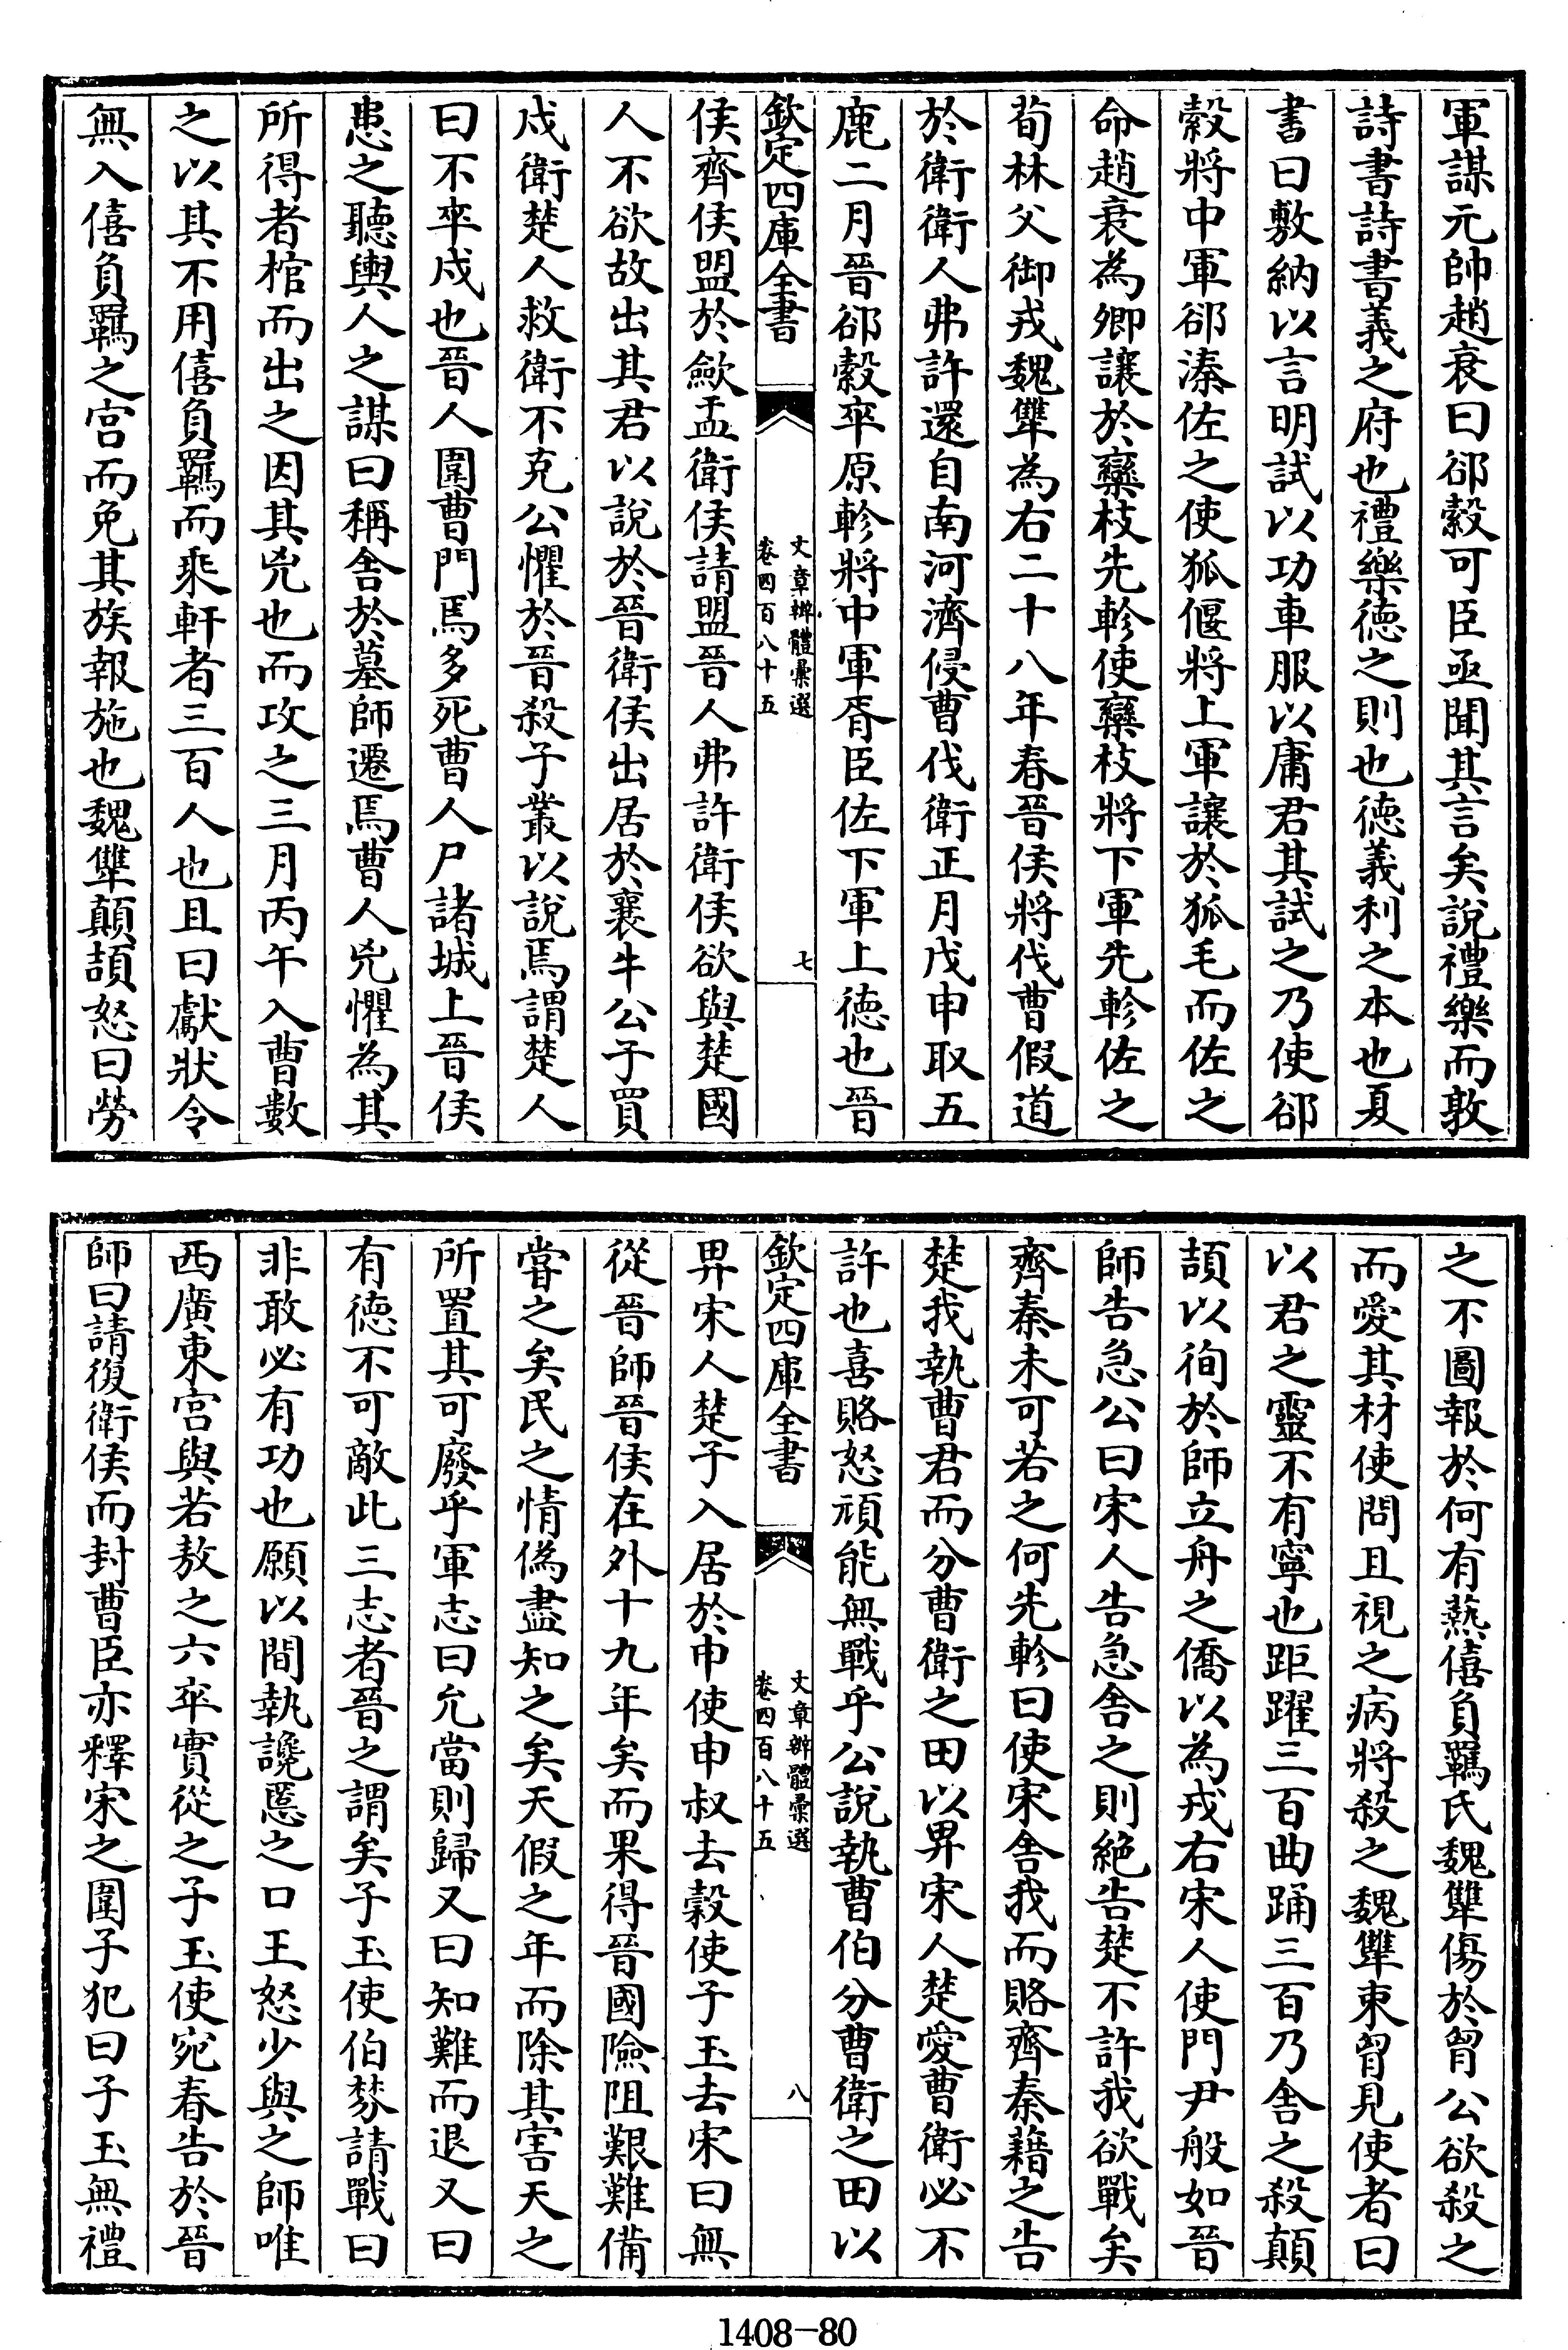 軍謀元帥趙衰曰郤縠可臣亟聞其言矣說禮樂而敦
詩書詩書義之府也禮樂德之則也德義利之本也夏
書曰敷納以言明試以功車服以庸君其試之乃使郤
縠將中軍郤溱佐之使狐偃將上軍讓於狐毛而佐之
命趙衰為卿讓於欒枝先軫使欒枝將下軍先軫佐之
荀林父御戎魏犨為右二十八年春晉侯將伐曹假道
於衛衛人弗許還自南河濟侵曹伐衛正月戊申取五
鹿二月晉郤縠卒原軫將中軍胥臣佐下軍上德也晉
欽定四庫全書
文章辨體彙選
卷四百八十五
七
侯齊侯盟於斂盂衛侯請盟晉人弗許衛侯欲與楚國
人不欲故出其君以說於晉衛侯出居於襄牛公子買
戍衛楚人救衛不克公懼於晉殺子叢以說焉謂楚人
曰不卒戍也晉人圍曹門焉多死曹人尸諸城上晉侯
患之聽輿人之謀曰稱舍於墓師遷焉曹人兇懼為其
所得者棺而出之因其兇也而攻之三月丙午入曹數
之以其不用僖負羈而乘軒者三百人也且曰獻狀令
無入僖負羈之宮而免其族報施也魏犨顛頡怒曰勞
之不圖報於何有爇僖負羈氏魏犨傷於胷公欲殺之
而愛其材使問且視之病將殺之魏犨束胷見使者曰
以君之靈不有寧也距躍三百曲踊三百乃舍之殺顛
頡以徇於師立舟之僑以為戎右宋人使門尹般如晉
師告急公曰宋人告急舍之則絕告楚不許我欲戰矣
齊秦未可若之何先軫曰使宋舍我而賂齊秦藉之告
楚我執曹君而分曹衛之田以畀宋人楚愛曹衛必不
許也喜賂怒頑能無戰乎公說執曹伯分曹衛之田以
欽定四庫全書
文章辨體彙選
卷四百八十五
八
畀宋人楚子入居於申使申叔去穀使子玉去宋曰無
從晉師晉侯在外十九年矣而果得晉國險阻艱難備
嘗之矣民之情偽盡知之矣天假之年而除其害天之
所置其可廢乎軍志曰允當則歸又曰知難而退又曰
有德不可敵此三志者晉之謂矣子玉使伯棼請戰曰
非敢必有功也願以間執讒慝之口王怒少與之師唯
西廣東宮與若敖之六卒實從之子玉使宛春告於晉
師曰請復衛侯而封曹臣亦釋宋之圍子犯曰子玉無禮
1408-80